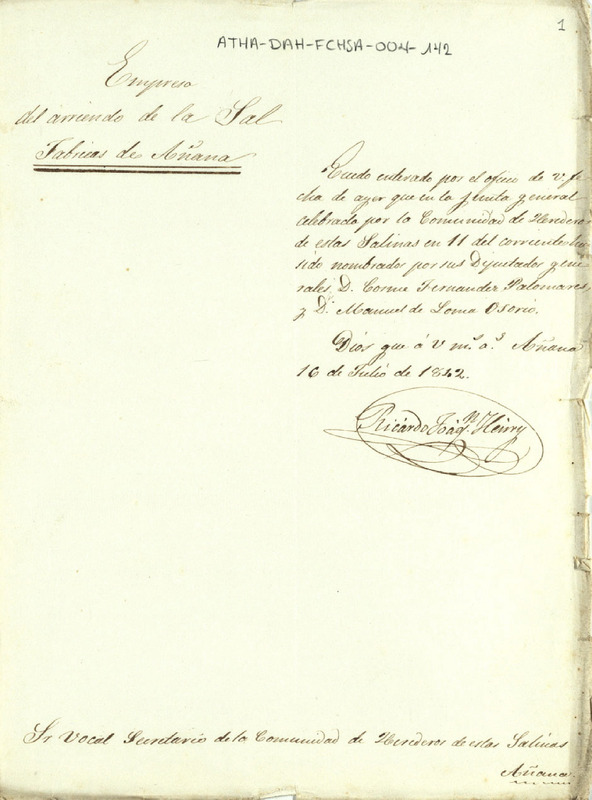 1
ATHA-DAH-FCHSA-004-142
Empresa
del arriendo de la Sal
Fabricas de Añana
Quedo enterado por el oficio de V. fe
cha de ayer que en la Junta general
celebrada por la Comunidad de Herederos
de estas Salinas en 11 del corriente han
sido nombrados por sus Diputados gene
rales, D. Cosme Fernandez Palomares,
y D. Manuel de Loma Osorio.
Dios gue á V ms. as. Añana
16 de Julio de 1842.
Ricardo Henry
Sr Vocal Secretario de la Comunidad de Herederos de estas Salinas
Añana